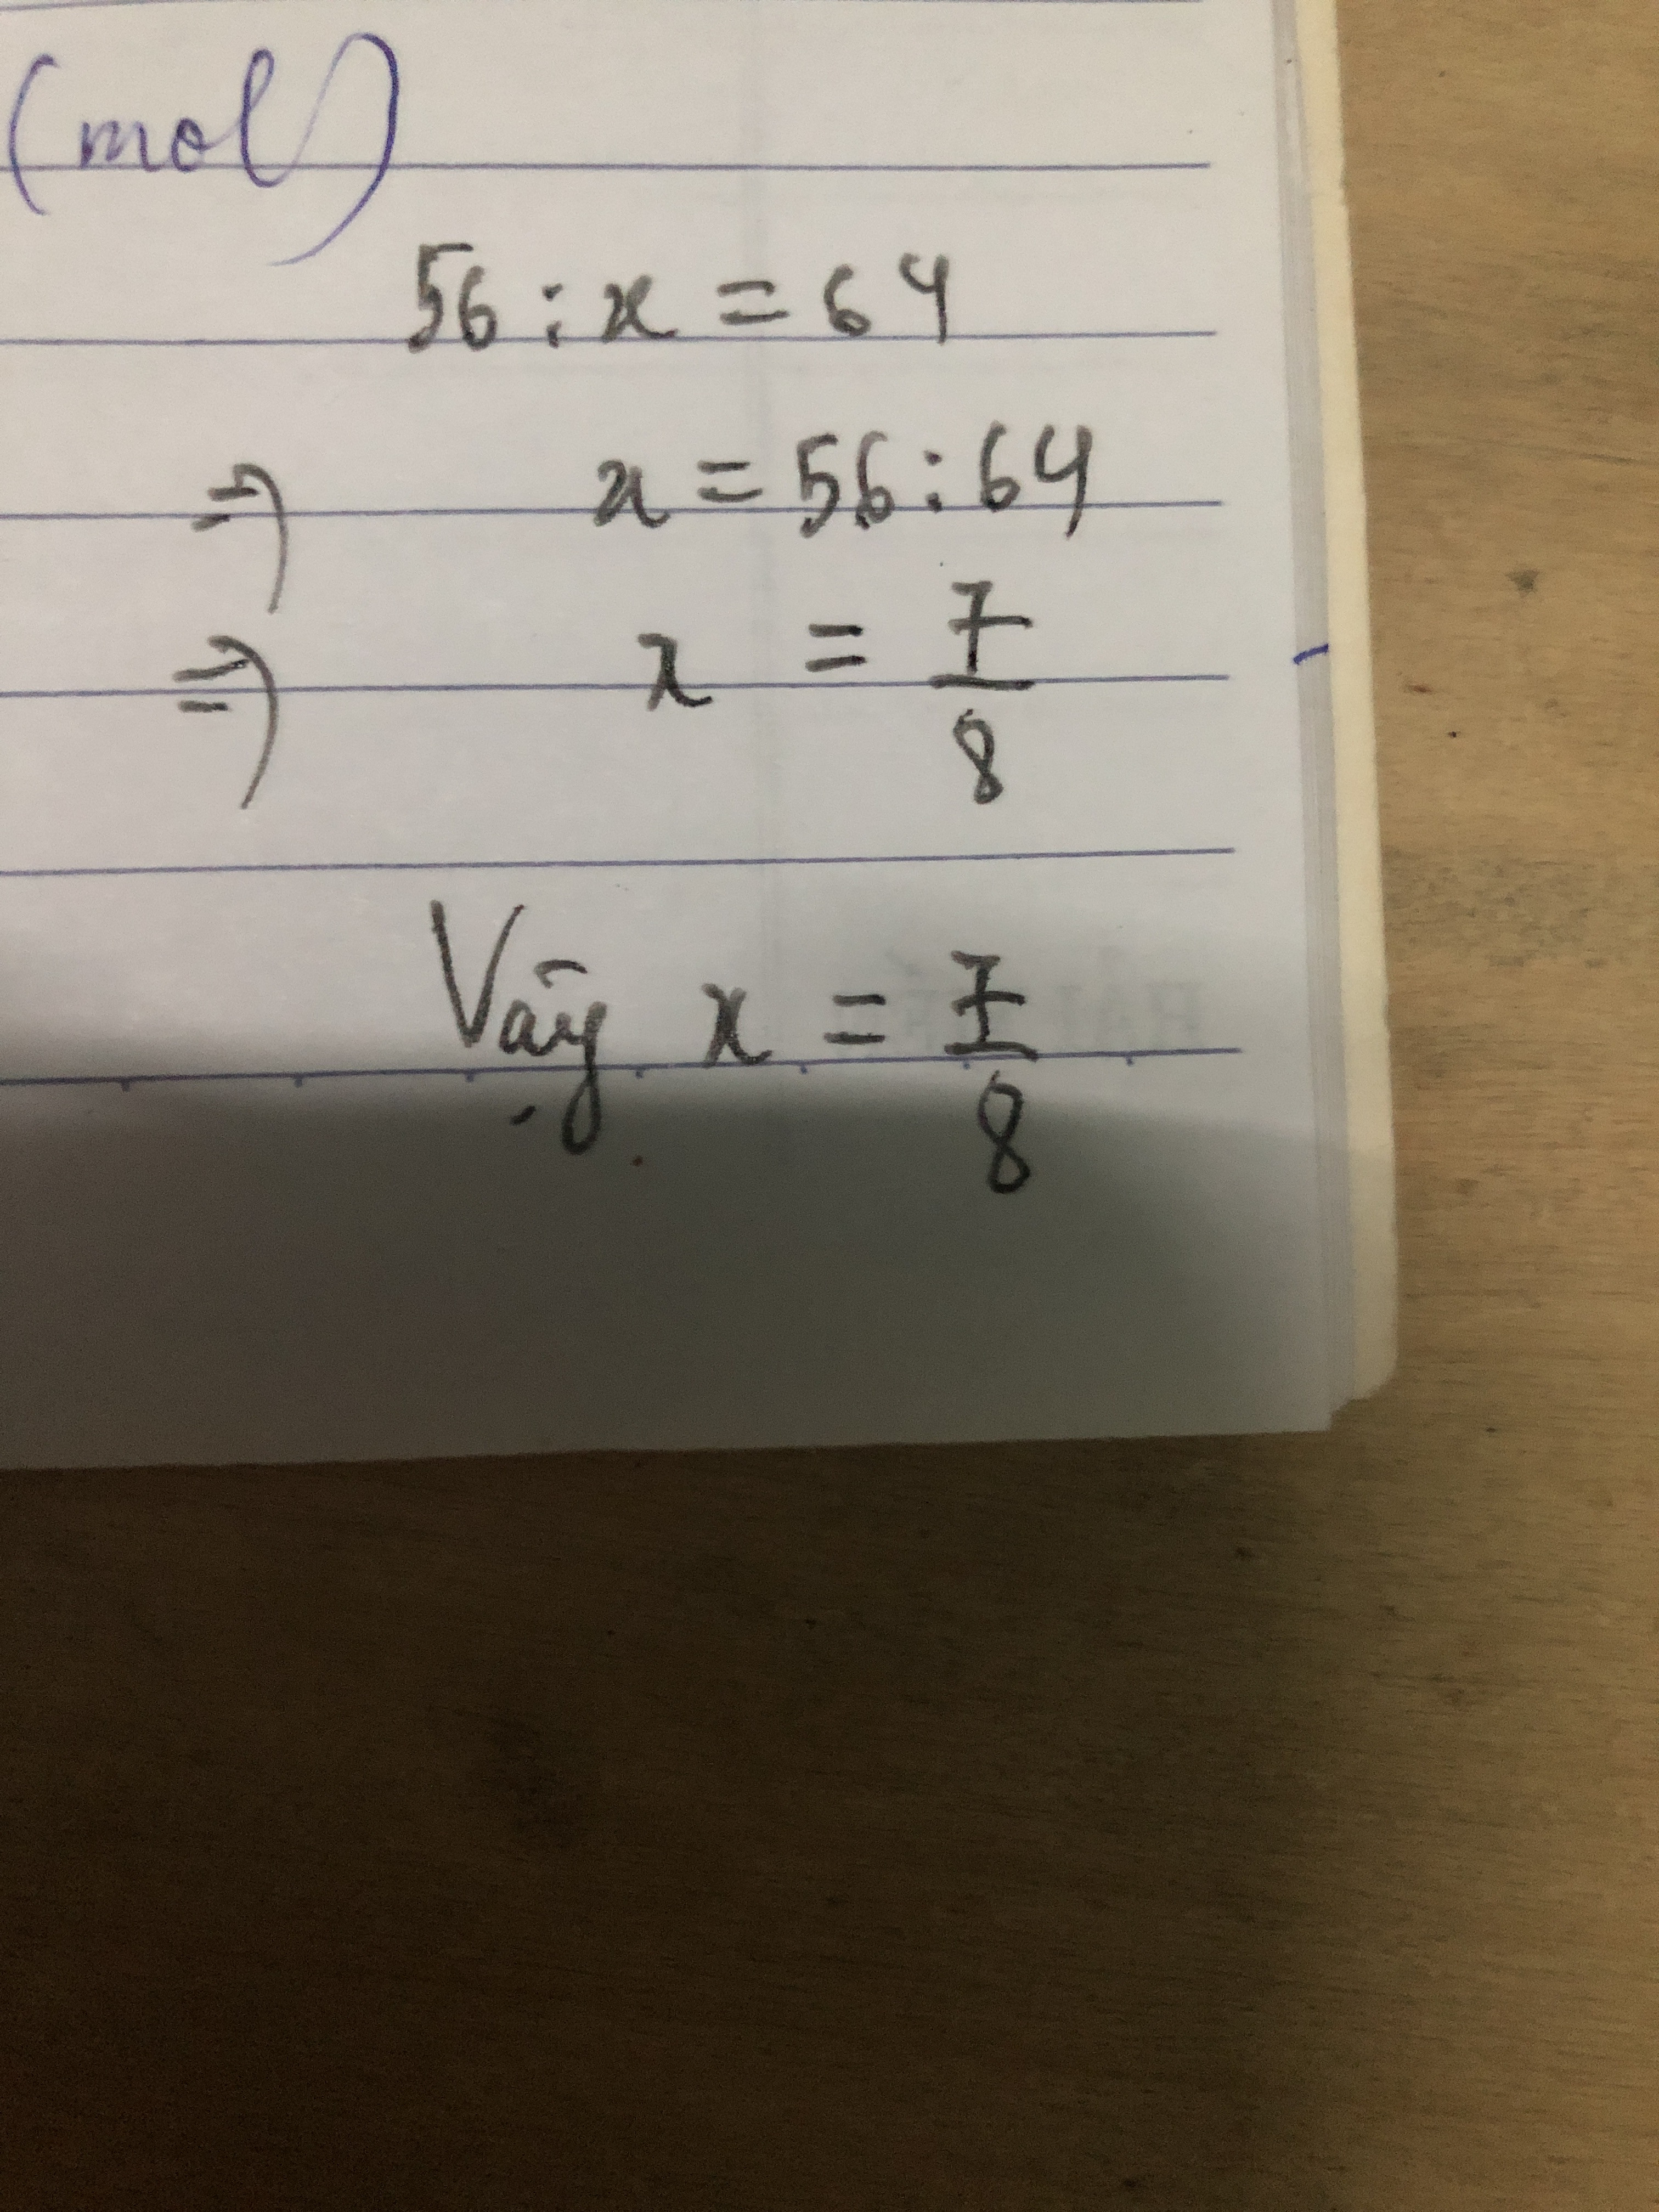 (mol)
56 : x = 64
=> x = 56 : 64
=> x = 7/8
Vậy x = 7/8